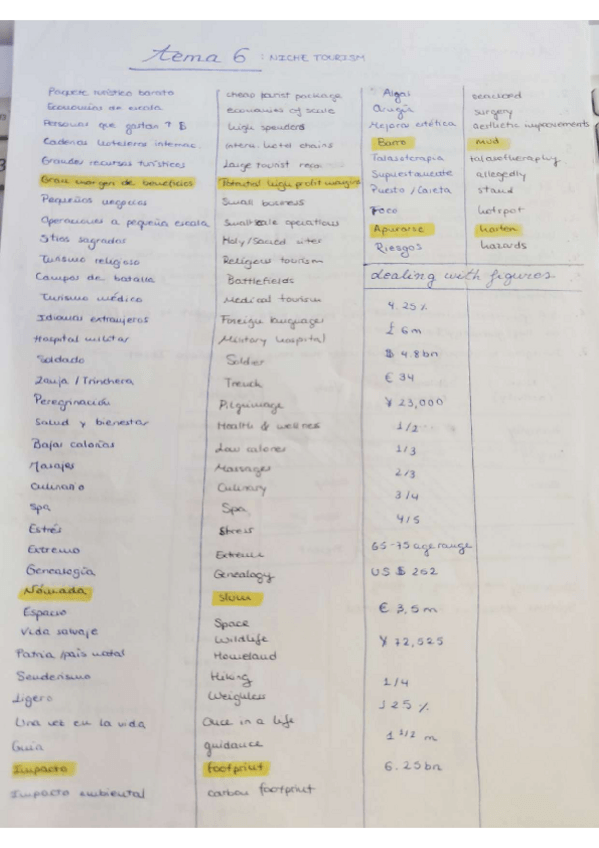 tema 6 : NICHE TOURISM
Paquete turístico barato cheap tourist package
Economías de escala economies of scale
Personas que gastan ↑ B high spenders
Cadenas hoteleras internac. intern. hotel chains
Grandes recursos turísticos Large tourist
Gran margen de beneficios Potential high profit margins
Pequeños negocios Small business
Operaciones a pequeña escala Small scale operations
Sitios sagrados Holy/Sacred sites
Turismo religioso Religious tourism
Campos de batalla Battlefields
Turismo médico Medical tourism
Idiomas extranjeros Foreign languages
Hospital militar Military hospital
Soldado Soldier
Zanja / Trinchera Trench
Peregrinación Pilgrimage
Salud y bienestar Health & wellnes
Bajas calorías Low calories
Masajes Massages
Culinario Culinary
Spa Spa
Estrés Stress
Extremo Extreme
Genealogía Genealogy
Nómada slow
Espacio Space
Vida salvaje Wildlife
Patria /país natal Homeland
Senderismo Hiking
Ligero Weighless
Una vez en la vida Once in a life
Guía guidance
Impacto footprint
Impacto ambiental carbon footprint
Algas seaweed
Cirugía surgery
Mejora estética aesthetic improvements
Barro mud
Talasoterapia talasotheraphy
Supuestamente allegedly
Puesto / Careta stand
Foco hotspot
Apurarse hasten
Riesgos hazards
dealing with figures
4.25%
£ 6m
$ 4.8bn
€ 34
¥ 23,000
1/2
1/3
2/3
3/4
4/5
65-75 age range
US $ 262
€ 3,5 m
¥ 72,525
1/4
125 %
1 1/2 m
6.25bn